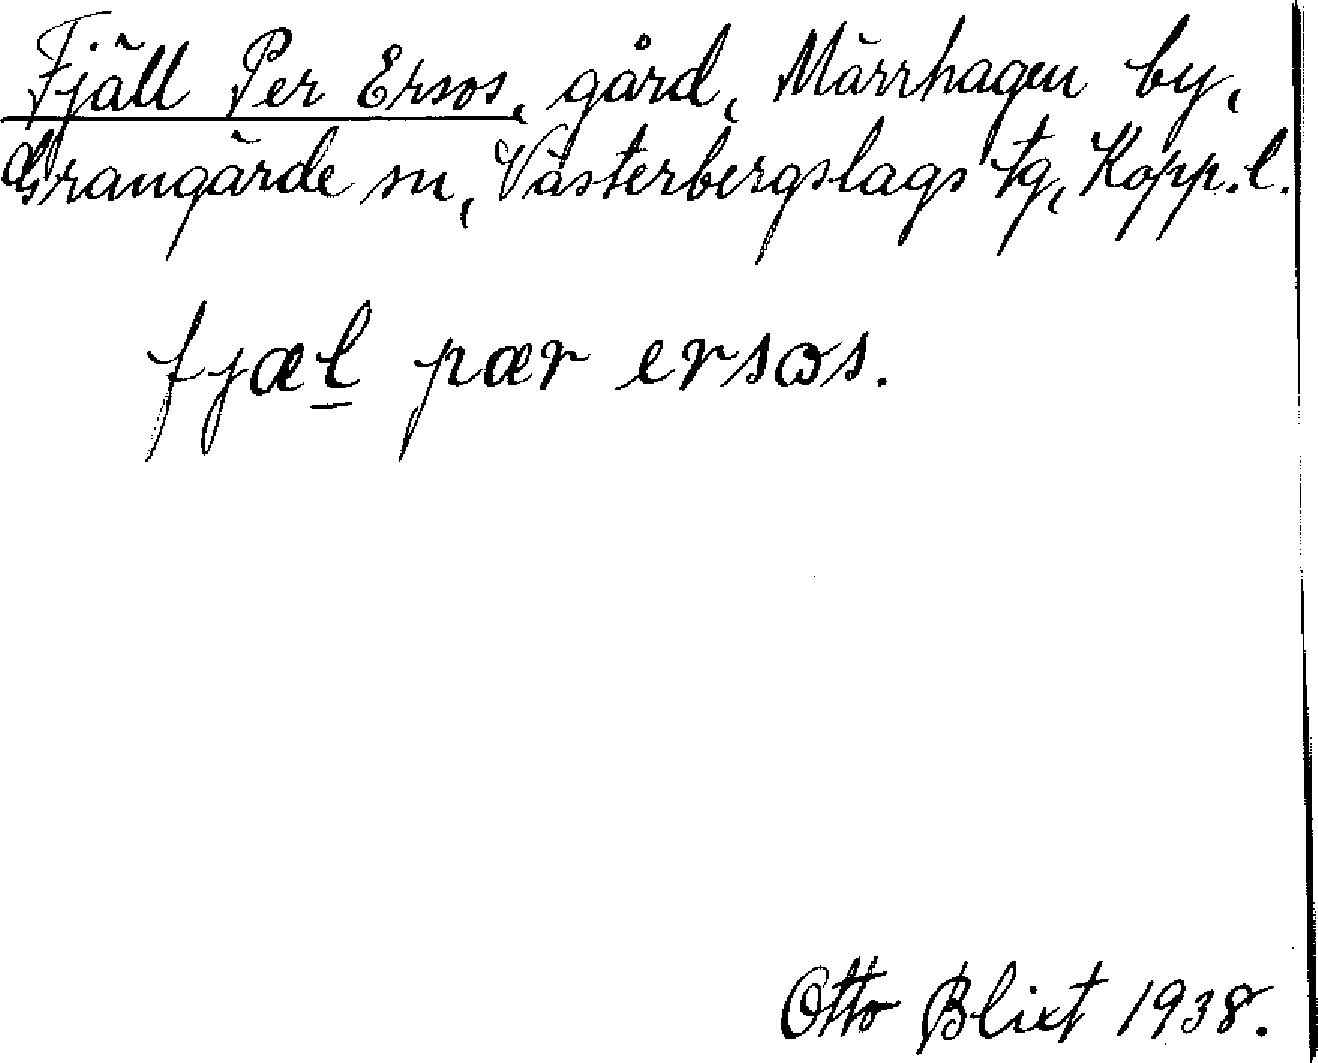 Fjäll Per Ersos, gård, Märrhagen by,
Grangärde sn, Västerbergslags tg, Kopp. l.
fjæl̲ pær ersɷs.
Otto Blixt 1938.